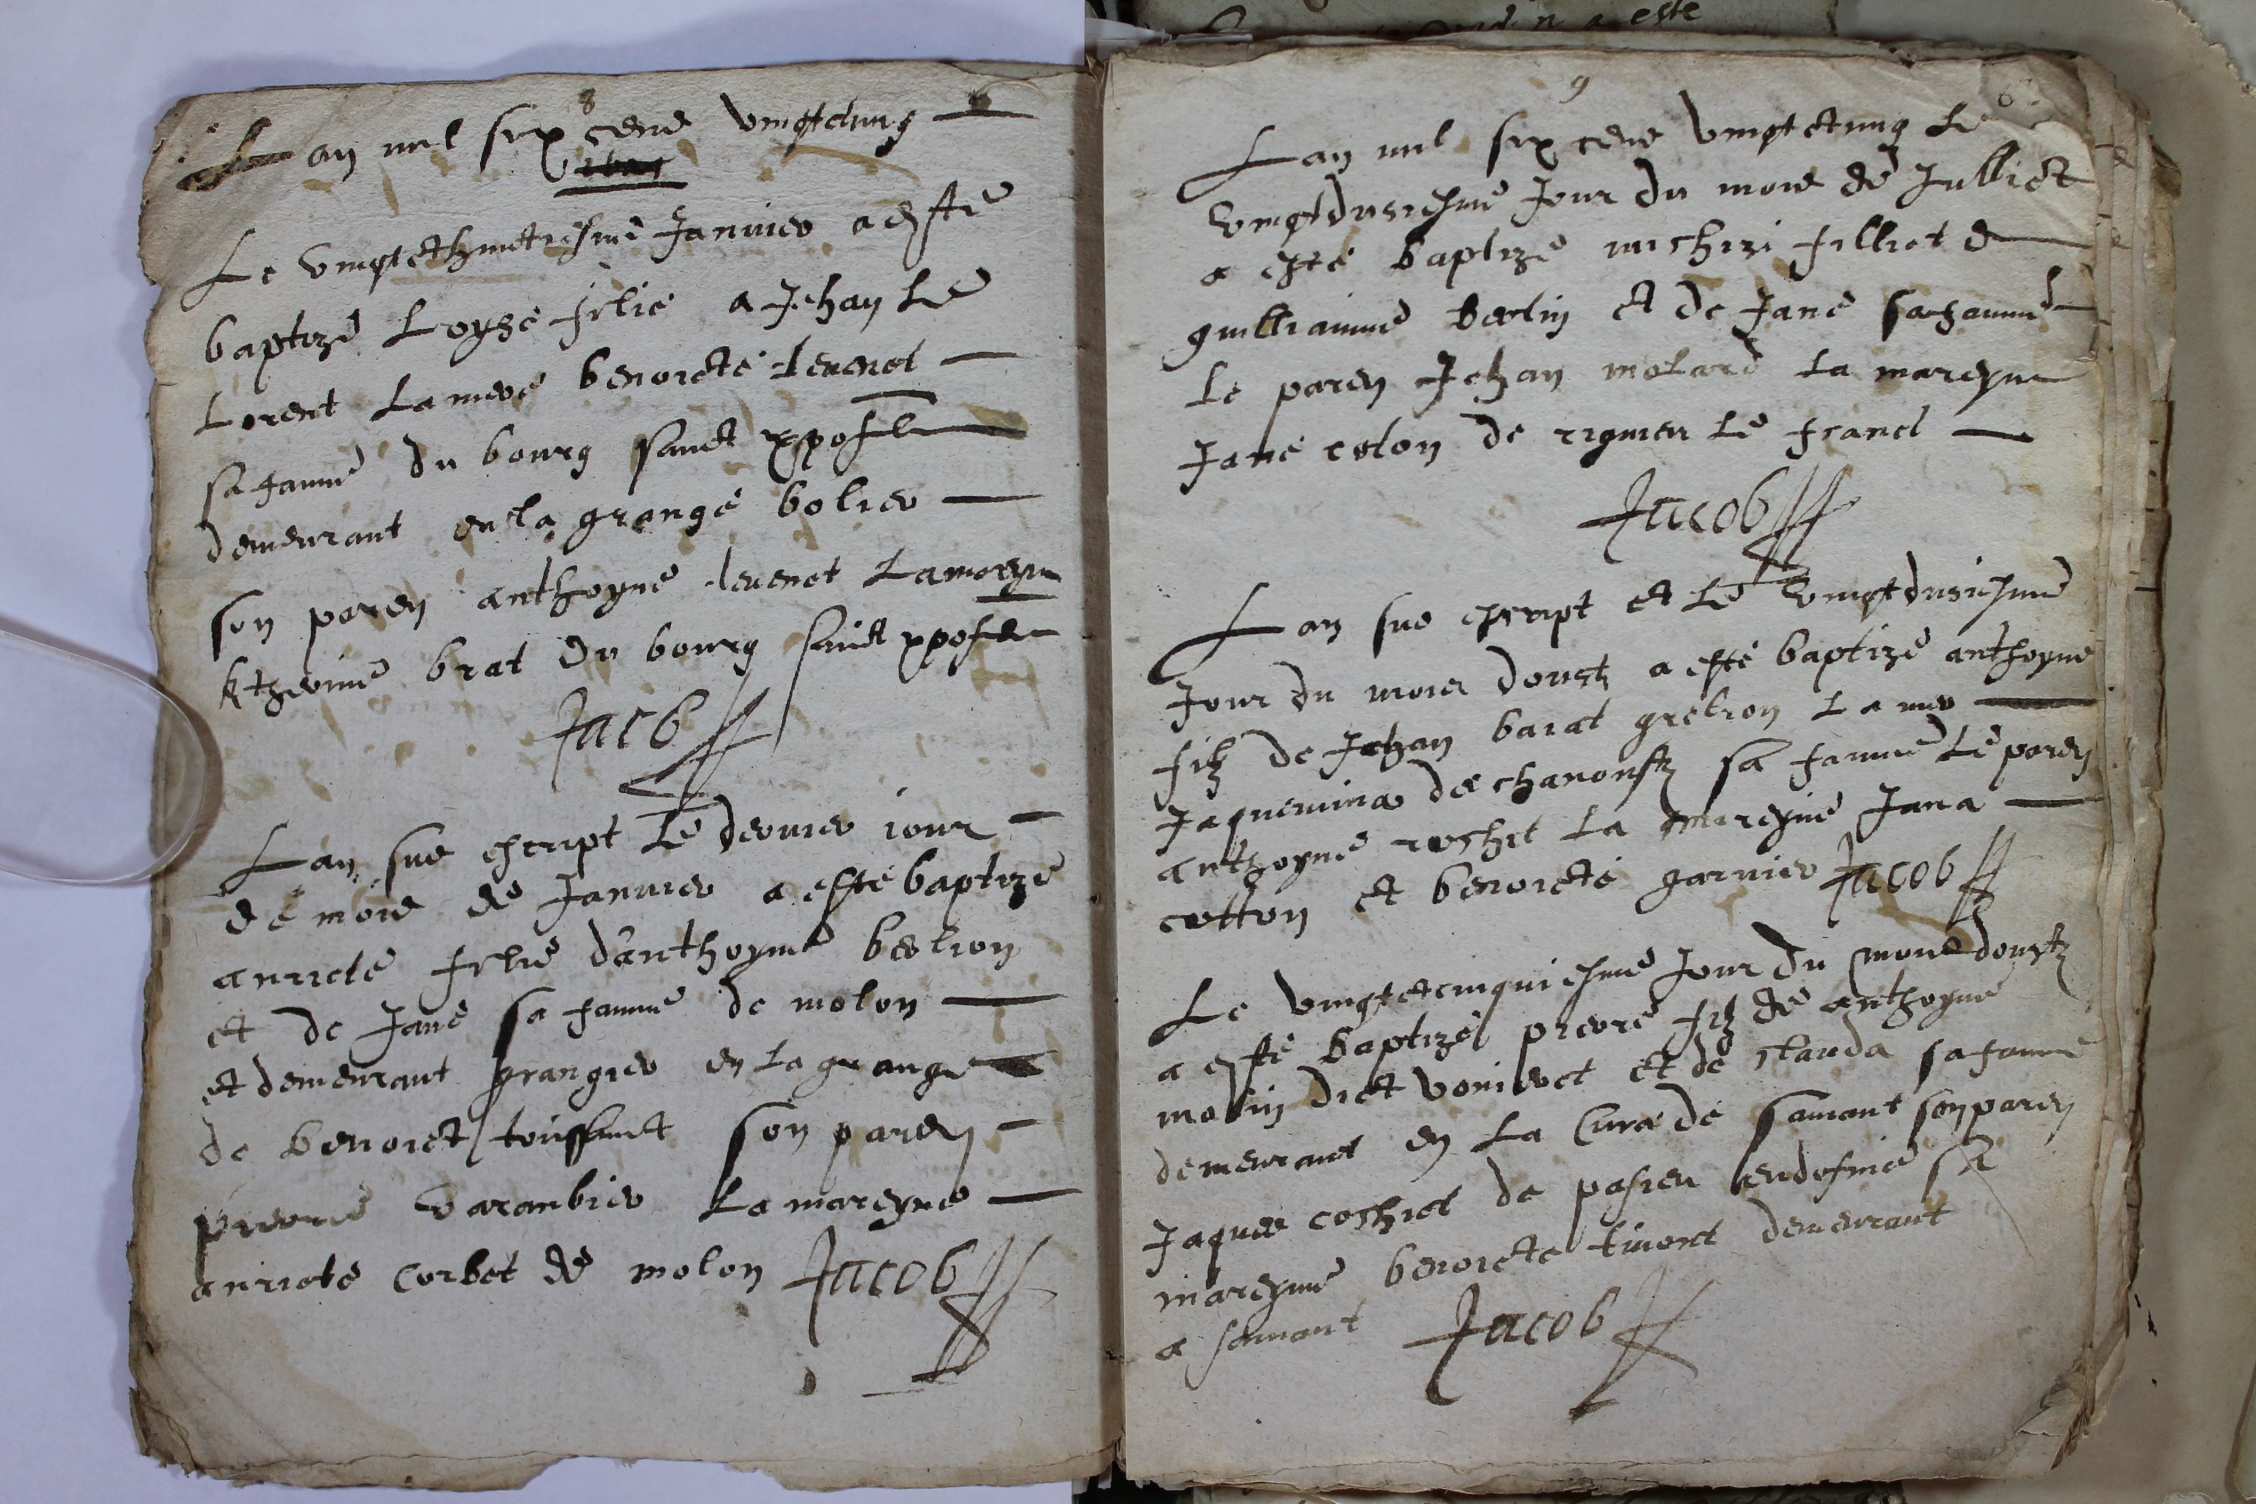 8
Lan mil six cens vingtetung
Le vingtethuittiesme Janvier a esté
baptizé Loyse fillie a Jehan Le
Lorent La mere benoicte tevenet
sa famme du bourg sainct xpofle
demeurant en la grange bolier
son paren anthoyne tevenet La mareyne
ktherine brat du bourg sainct xpofle
Jacob
Lan sus escript Le dernier jour
de mois de Janvier a esté baptizé
anriete fillie d'anthoyne berlion
et de Jane sa famme de molon
et demeurant grangier en la grange
de benoict toussainct son paren
pierre varanbier La mareyne
anriete corbet de molon Jacob
9
Lan mil six cens vingtetung Le
vingtdusiesme Jour du mois de Julliet
a esté baptizé filliet de
guilliaume berlin et de Jane sa famme
Le paren Jehan molard La mareyne
Jane colon de rignieu le franc
Jacob
Lan sus escript et le vingtdusiesme
Jour du mois doust a esté baptizé anthoyne
filz de Jehan barat grelion La mere
Jaquemina de chanoustz sa famme Le paren
anthoyne rochet La mareyne Jana
cotton et benoicte garnier Jacob
Le vingtetcinquiesme Jour du mois doustz
a esté baptizé pierre filz de anthoyne
molin dict et de clauda sa famme
demeurant en La Cura de samant son paren
Jaques cochet de pasieu sa
mareyne benoicte tivent demeurant
a samant Jacob